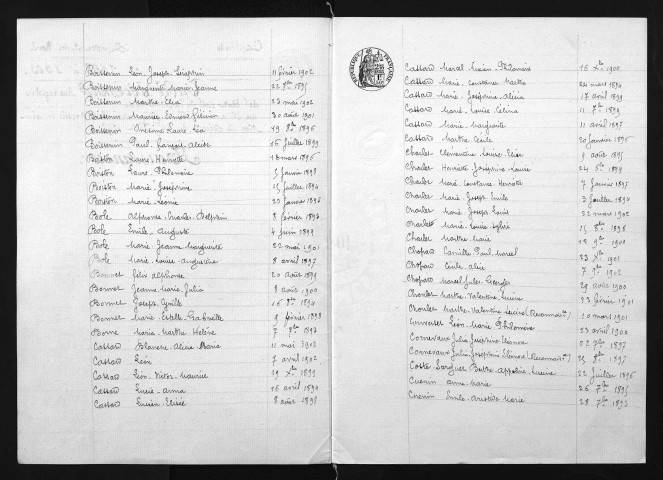 Boissenin Léon Joseph Séraphin 11 février 1902
Boissenin Marguerite Marie Jeanne 22 1895
Boissenin Marthe Elia 23 mai 1902
Boissenin Maurice 30 août 1901
Boissenin Onésime Laure Léa 19 8bre 1896
Boissenin Paul François 16 juillet 1899
Boiston Laure Henriette 18 mars 1896
Boiston Laure Philomène 5 janvier 1898
Boiston Marie Joséphine 15 juillet 1894
Boiston Marie Léonie 20 janvier 1896
Bole Alphonse Charles Delphin 8 février 1894
Bole Emile Auguste 4 juin 1899
Bole Marie Jeanne Marguerite 22 mai 1901
Bole Marie Louise Augustine 8 avril 1897
Bonnet Félix Alphonse 20 août 1899
Bonnet Jeanne Marie Julia 8 août 1900
Bonnet Joseph Cyrille 16 1894
Bonnet Marie Estelle Gabrielle 9 février 1898
Borne Maria Marthe Hélène 7 7bre 1897
Cassard Blanche Alice Marie 11 mai 1902
Cassard Léon 7 avril 1902
Cassard Léon Victor Maurice 29 Xbre 1899
Cassard Lucie Anna 16 avril 1894
Cassard Lucien Elisée 8 août 1898
REPUBLIQUE FRANÇAISE
Cassard Marcel Lucien Philomène 16 Xbre 1900
Cassard Marie Constance Marthe 24 mars 1894
Cassard Marie Joséphine Alicia 17 avril 1899
Cassard Marie Louise Célina 11 7bre 1899
Cassard Marie Marguerite 11 avril 1897
Cassard Marthe Cécile 20 janvier 1896
Charles Clémentine Louise 9 août 1895
Charles Henriette Joséphine Louise 24 8bre 1894
Charles Marie Constance Henriette 7 janvier 1897
Charles Marie Joseph Emile 3 juillet 1894
Charles Marie Joseph Louis 22 mars 1902
Charles Marie Louise 15 8bre 1898
Charles Marthe Marie 18 9bre 1901
Chopard Camille Paul Marcel 23 Xbre 1901
Chopard Cécile Alice 7 9bre 1902
Chopard Marcel Jules Georges 29 août 1900
Marthe Valentine 23 février 1901
Marthe Valentine (Reconnaiss.) 10 mars 1901
Léon Marie Philomène 23 avril 1900
Cornevaux Julia Joséphine Eléonore 22 7bre 1897
Cornevaux Julia Joséphine Eléonore (Reconnaiss.) 25 1897
Coste Berthe Appoline 22 juillet 1896
Cuenin Anne Marie 26 7bre 1895
Cuenin Emile Aristide Marie 28 7bre 1893